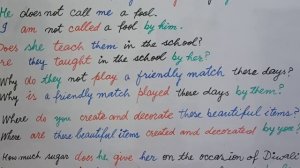 He does not call me a fool.
I am not called a fool by him.
Does she teach them in the school?
Are they taught in the school by her?
Why do they not play a friendly match these days?
Why is a friendly match played these days by them?
Where do you create and decorate these beautiful items?
Where are these beautiful items created and decorated by you?
How much sugar does he give her on the occasion of Diw